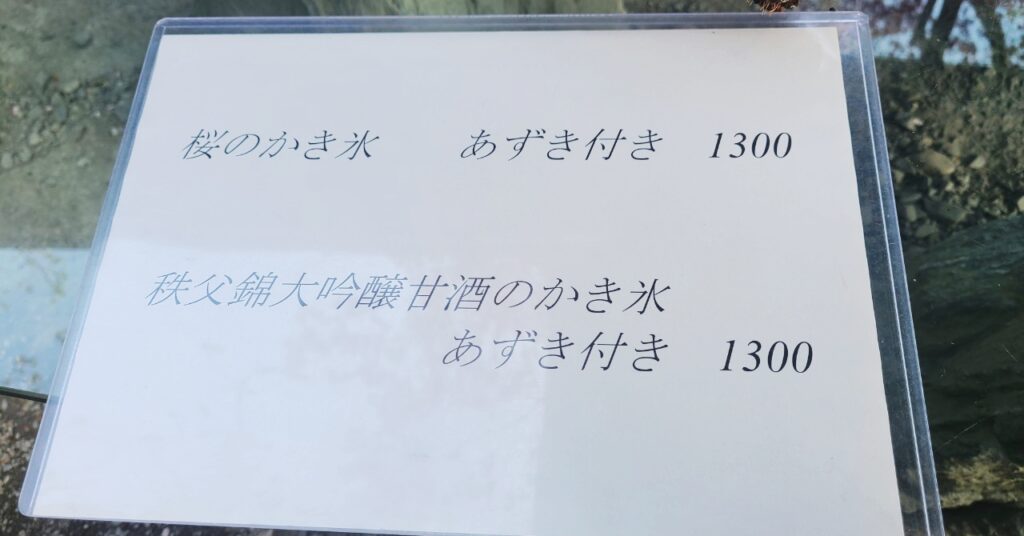 桜のかき氷　　あずき付き　1300
秩父錦大吟醸甘酒のかき氷
あずき付き　1300